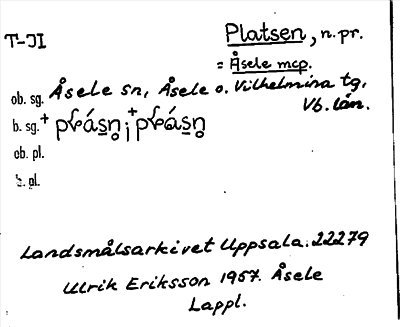 T-JI Platsen, n. pr.
= Åsele mcp.
ob. sg. Åsele sn, Åsele o. Vilhelmina tg,
Vb. län.
b. sg.
ob. pl.
b. pl.
Landsmålsarkivet Uppsala. 22279
Ulrik Eriksson 1957. Åsele
Lappl.